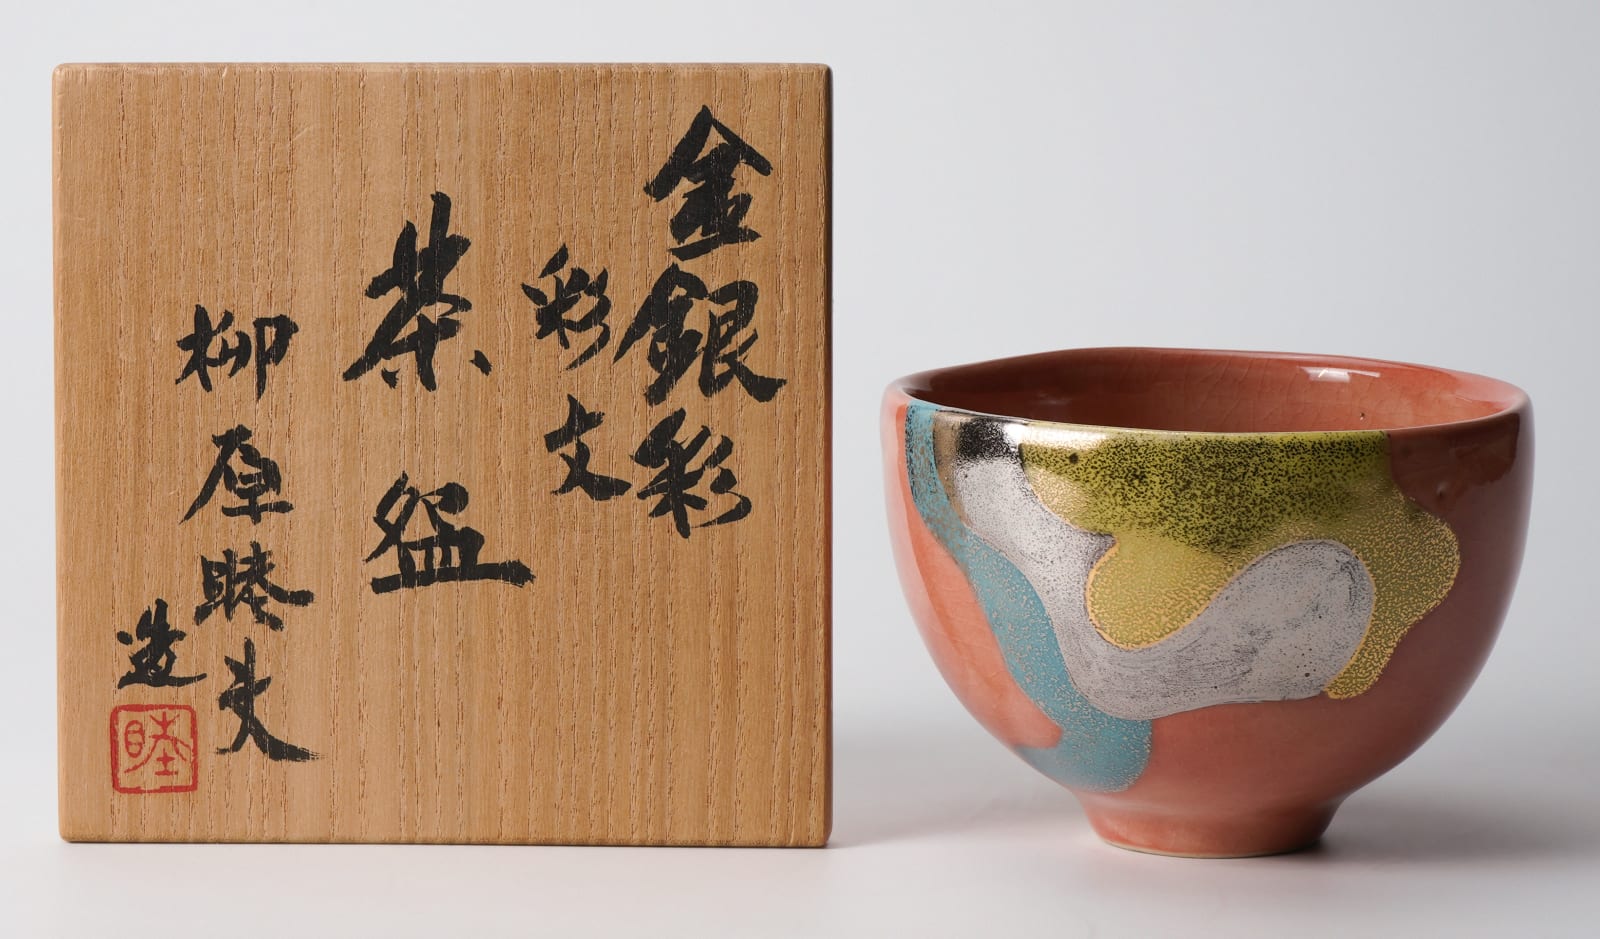 金銀彩
彩文
茶盌
柳原睦夫
造
睦